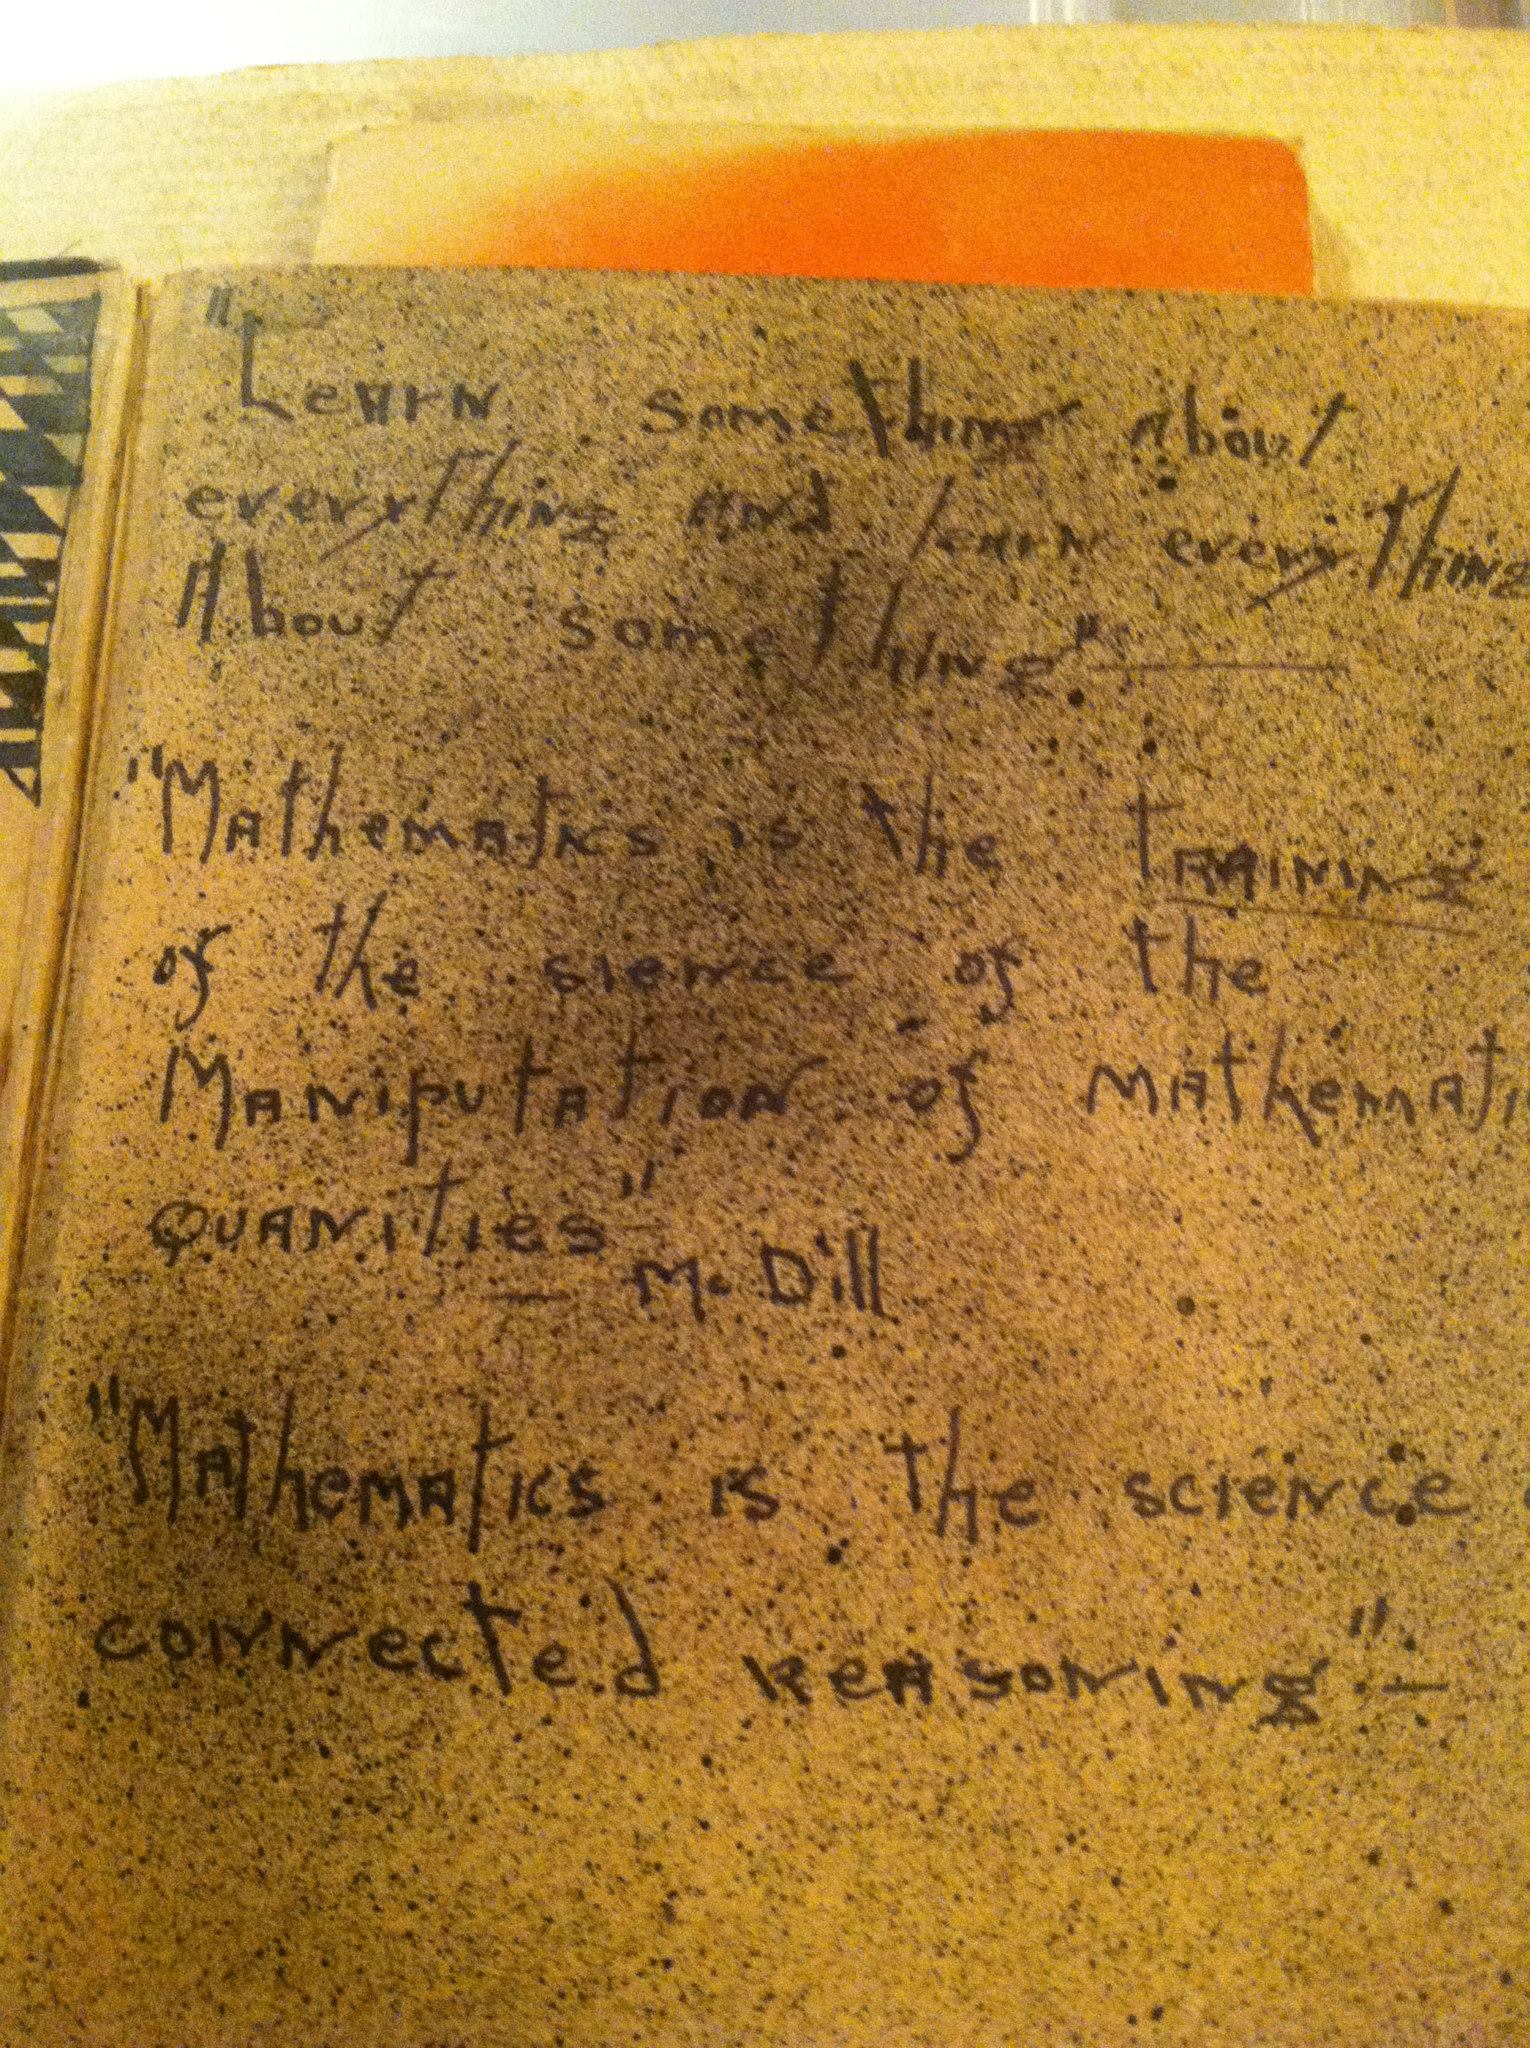 "Learn something about
everything and learn everything
About something" —
"Mathematics is the training
of the sience of the
Maniputation of mathemati
Quanities"
— Mc Dill
"Mathematics is the science
connected reasoning" —